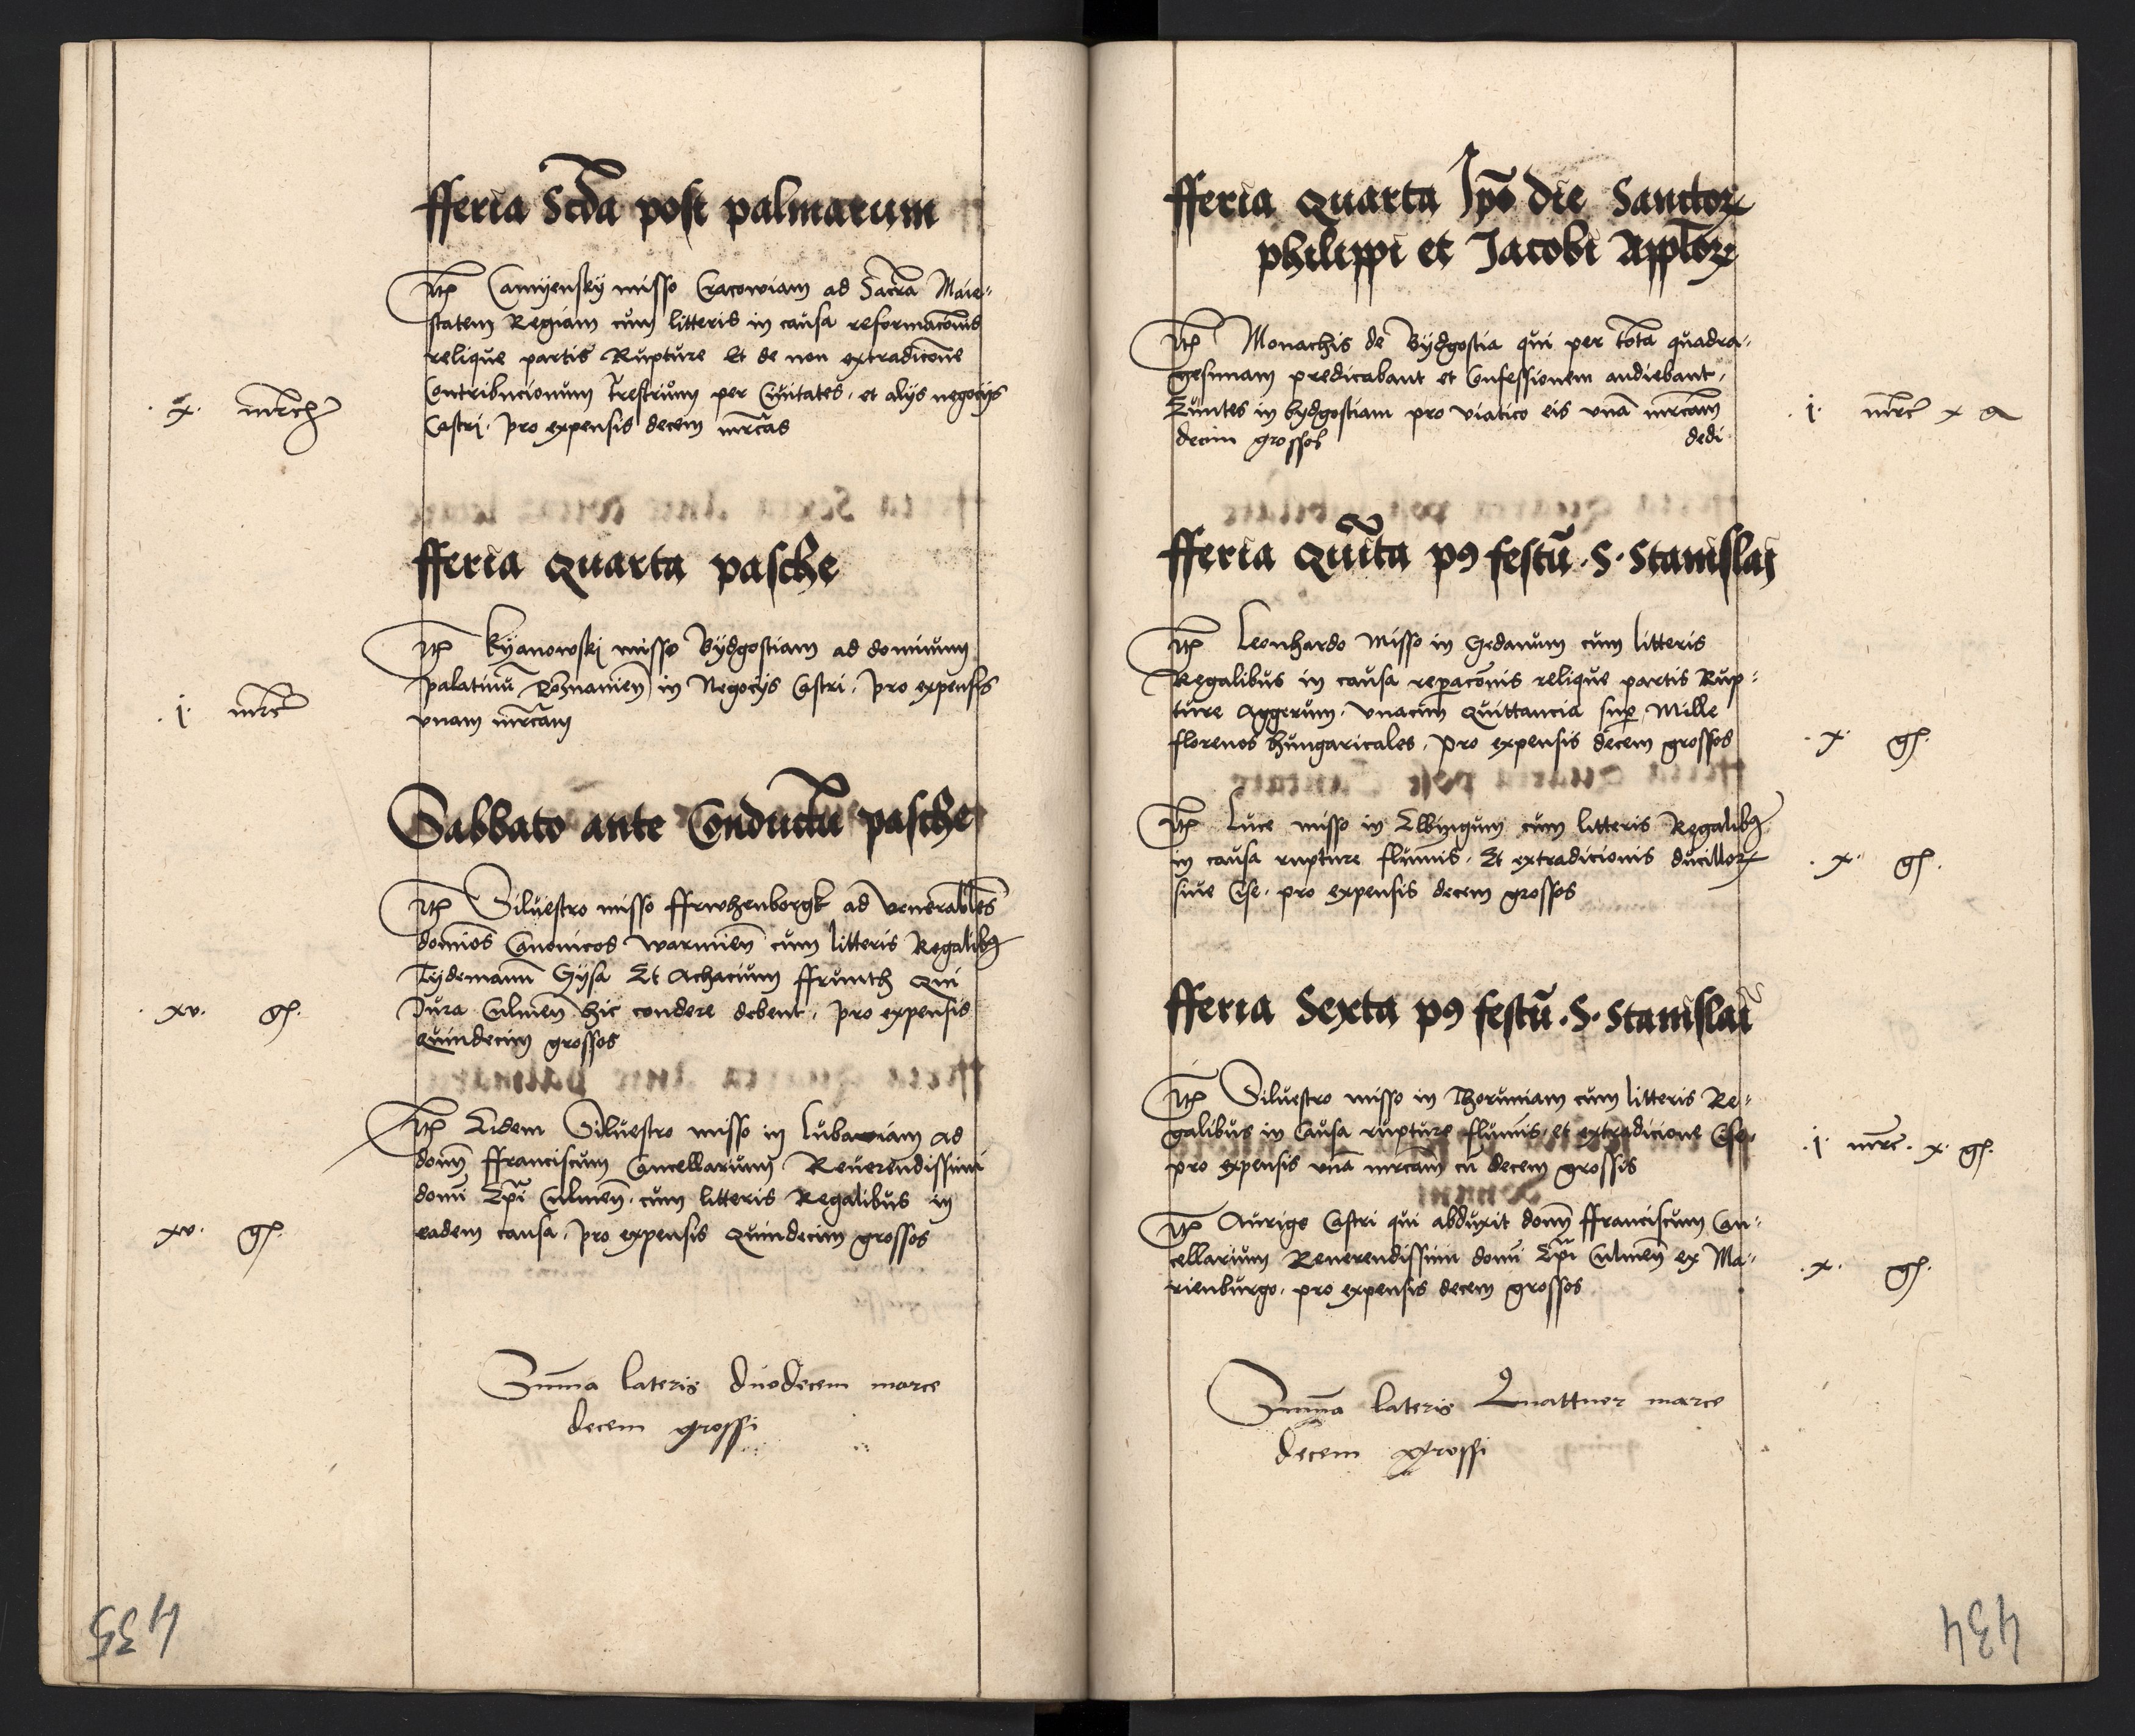 fferia Scda post palmarum
Itm Camyensky misso Cracowiam ad Sacra Maie-
statem Regiam cum litteris in causa reformacois
relique partis Rupture Et de non extradicone
Contribucionum trestrium per Civitates, et alijs negocijs
Castri. pro expensis decem mrcas
x. mrc
fferia quarta pasche
Itm Kyanowskj misso Bydgostiam ad dominum
palatinu Roznanien in Negocijs Castri. pro expensis
vnam mrcam
.j. mrc
Sabbato ante Conductu pasche
Itm Siluestro misso ffrwhenborgk ad venerabiles
domios Canonicos warmien cum litteris Regalib9
Tydemann Gysa Et Achacium ffrunth qui
Jura Culmen hic condere debent, pro expensis
quindecim grossos
xv. gs.
Itm Eidem Siluestro misso in Lubaviam ad
domn ffranciscum Cancellarium Reuerendissimi
domi Epi Culmen. cum litteris Regalibus in
eadem causa, pro expensis quindecim grossos
xv. gs.
Suma lateris duodecem marce
decem grossi
435
fferia quarta Ipo die Sanctor
philippi et Jacobi Apptor
Itm Monachis de Bydgostia qui per tota quadra-
gesimam predicabant et Confessionem audiebant,
Euntes in bydgostiam pro viatico eis vna mrcam
decim grossos dedi
.j. mrc x g
fferia quita p9 festu .S. Stanislaj
Itm Leonhardo Misso in Gedanum cum litteris
Regalibus in causa reparacois relique partis Rup-
ture Aggerum. vnacum quittancia sup Mille
florenos hungaricales, pro expensis decem grossos
.x. gs.
Itm Luce misso in Elbingum cum litteris Regalib9
in causa rupture fluminis, Et extradicionis ducillor
siue Cise. pro expensis decem grossos
.x. gs.
fferia Sexta p9 festu .S. Stanislai
Itm Siluestro misso in Thoruniam cum litteris Re-
galibus in Causa rupture fluminis, et extradicione Cise,
pro expensis vna mrcam cu decem grossis
.j. mrc. x. gs.
Itm Aurige Castri qui abduxit domn ffranciscum Can-
cellarium Reuerendissimi domi Epi Culmen ex Ma-
rienburgo, pro expensis decem grossos
.x. gs.
Summa lateris Quattuor marce
decem grossi
434